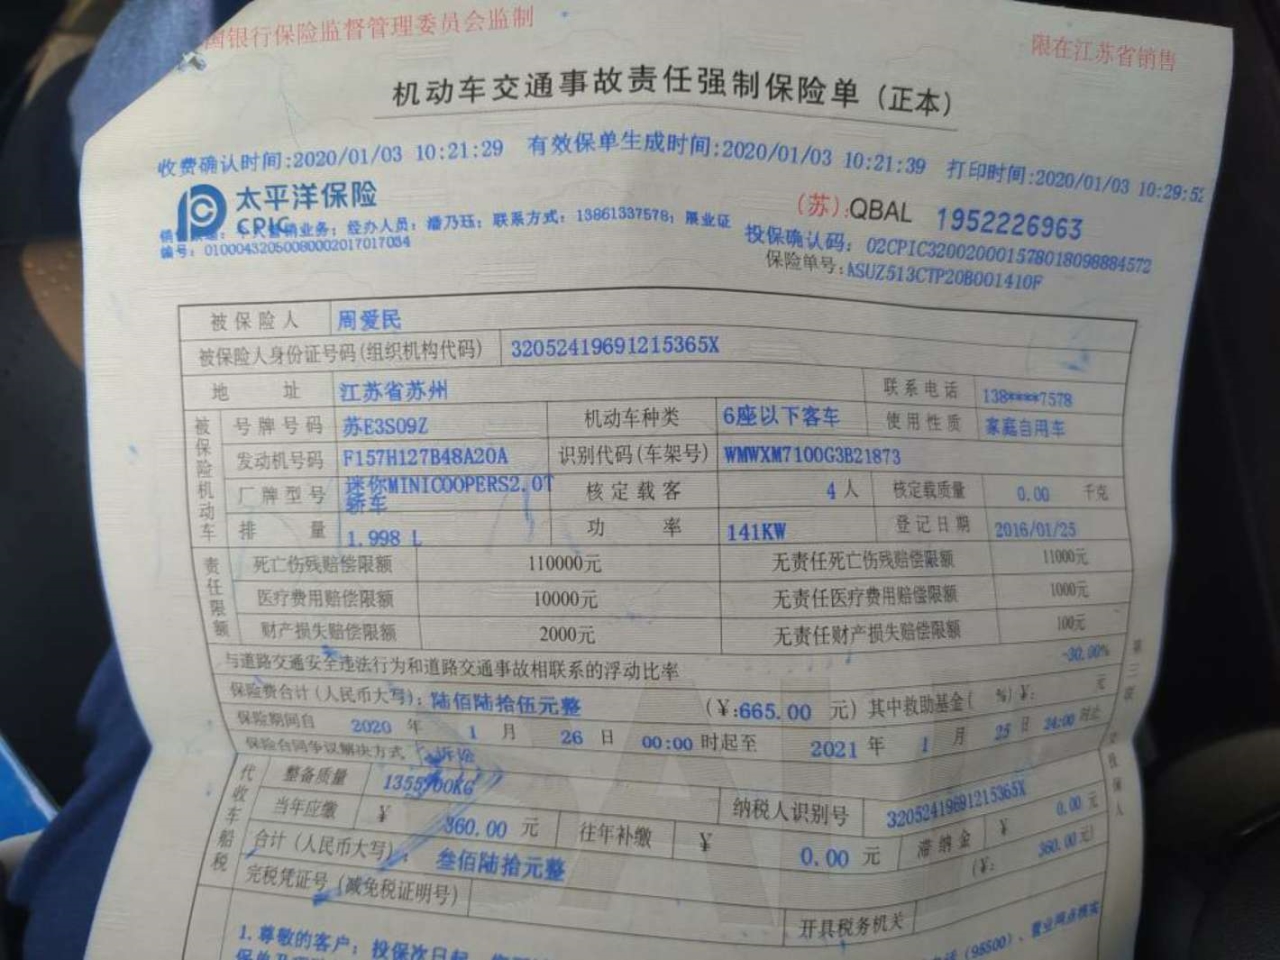 国银行保险监督管理委员会监制
限在江苏省销售
机动车交通事故责任强制保险单（正本）
收费确认时间:2020/01/03 10:21:29 有效保单生成时间:2020/01/03 10:21:39 打印时间:2020/01/03 10:29:52
太平洋保险
CPIC
(苏):QBAL 1952226963
业务；经办人员：潘乃珏；联系方式：13861337578；展业证
编号：01000432050080002017017034
投保确认码：02CPIC320020001578018098884572
保险单号：ASUZ513CTP20B001410F
被保险人 周爱民
被保险人身份证号码(组织机构代码) 32052419691215365X
地 址 江苏省苏州 联系电话 138****7578
被保险机动车
号牌号码 苏E3S09Z 机动车种类 6座以下客车 使用性质 家庭自用车
发动机号码 F157H127B48A20A 识别代码(车架号) WMWXM7100G3B21873
厂牌型号 迷你MINICOOPERS2.0T轿车 核定载客 4 人 核定载质量 0.00 千克
排 量 1.998 L 功 率 141KW 登记日期 2016/01/25
责任限额
死亡伤残赔偿限额 110000元 无责任死亡伤残赔偿限额 11000元
医疗费用赔偿限额 10000元 无责任医疗费用赔偿限额 1000元
财产损失赔偿限额 2000元 无责任财产损失赔偿限额 100元
与道路交通安全违法行为和道路交通事故相联系的浮动比率 -30.00%
保险费合计(人民币大写)：陆佰陆拾伍元整 (￥:665.00 元) 其中救助基金( %)￥: 元
保险期间自 2020 年 1 月 26 日 00:00 时起至 2021 年 1 月 25 日 24:00 时止
保险合同争议解决方式 诉讼
代收车船税
整备质量 1355.00KG 纳税人识别号 32052419691215365X
当年应缴 ￥ 360.00 元 往年补缴 ￥ 0.00 元 滞纳金 ￥ 0.00 元
合计(人民币大写)： 叁佰陆拾元整 (￥: 360.00 元)
完税凭证号(减免税证明号) 开具税务机关
1.尊敬的客户：投保次日起，